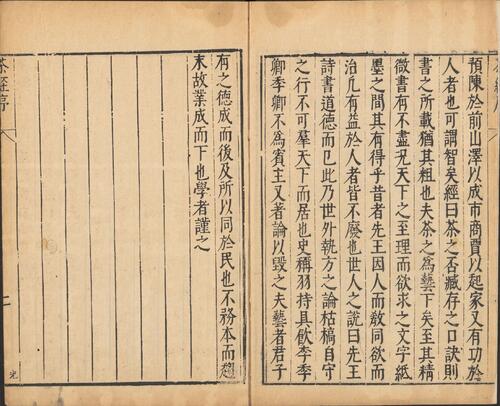 預陳於前山澤以成市商賈以起家又有功於
人者也可謂智矣經曰茶之否臧存之口訣則
書之所載猶其粗也夫茶之為藝下矣至其精
微書有不盡况天下之至理而欲求之文字紙
墨之間其有得乎昔者先王因人而敎同欲而
治凡有益於人者皆不廢也世人之說曰先王
詩書道德而已此乃世外執方之論枯槁自守
之行不可羣天下而居也史稱羽持具飲李季
卿季卿不為賓主又著論以毀之夫藝者君子
有之德成而後及所以同於民也不務本而趨
末故業成而下也學者謹之
茶經序
二
光